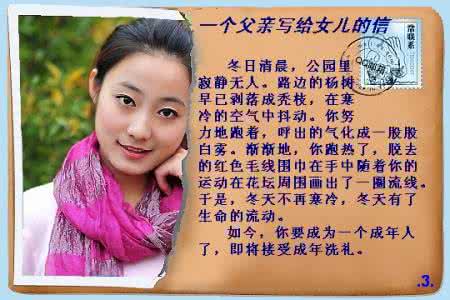 一个父亲写给女儿的信
常联系
冬日清晨，公园里
寂静无人。路边的杨树
早已剥落成秃枝，在寒
冷的空气中抖动。你努
力地跑着，呼出的气化成一股股
白雾。渐渐地，你跑热了，脱去
的红色毛线围巾在手中随着你的
运动在花坛周围画出了一圈流线。
于是，冬天不再寒冷，冬天有了
生命的流动。
如今，你要成为一个成年人
了，即将接受成年洗礼。
.3.